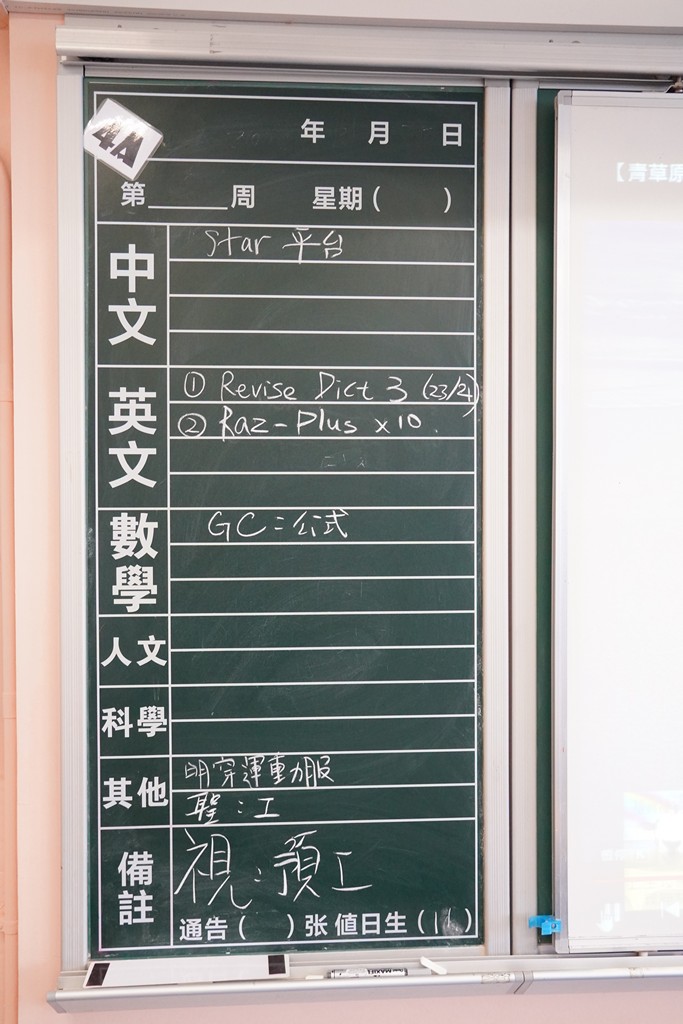 4A
年 月 日
第______周 星期( )
中文
Star 平台
英文
① Revise Dict 3 (23/24)
② Raz-Plus x10.
數學
GC:公式
人文
科學
其他
明穿運動服
聖:工
備註
視:預工
通告( )张 值日生(11)
【青草原